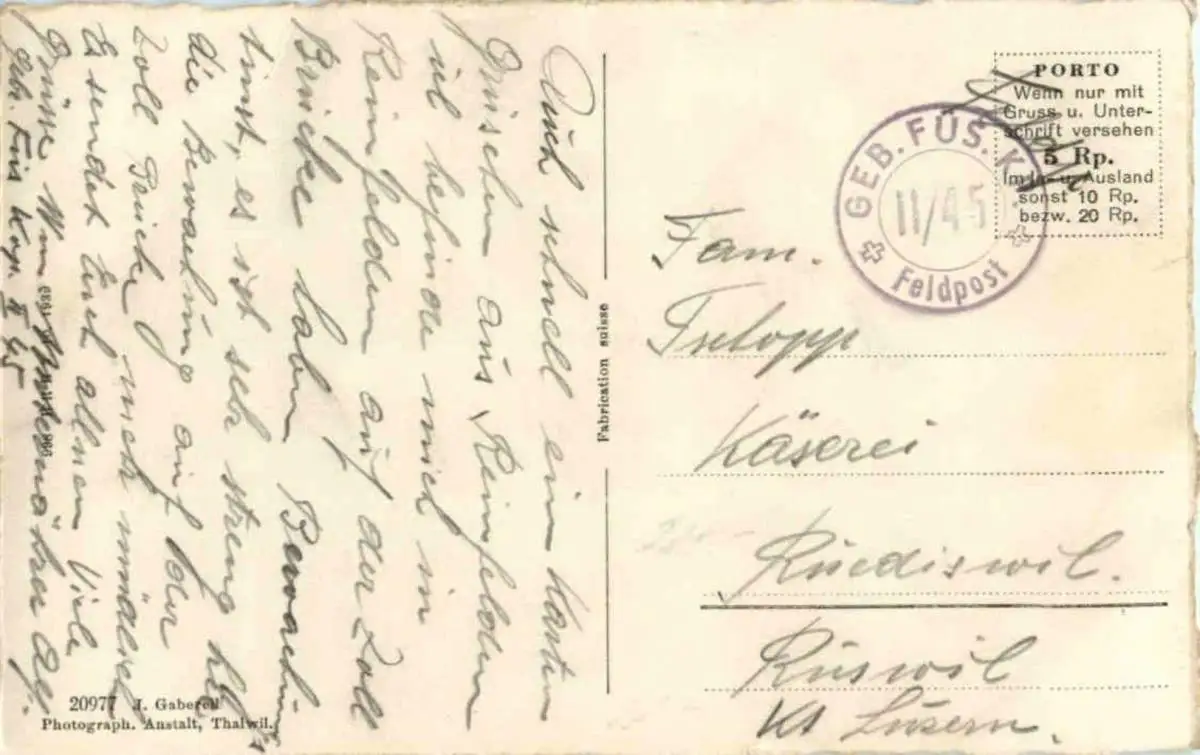 Auch schnell ein Karten
Grüschen aus Reinfelden
ich befinde mich in
Reinfelden auf der Zoll
Brücke haben Bewachung
es ist sehr streng
die Bewachung auf der
Zoll Brücke
Es sendet Euch allnen Viele
Grüsse
Geb. Füs Kop. II 45
20977 J. Gaberell
Photograph. Anstalt, Thalwil.
Fabrication suisse
PORTO
Wenn nur mit
Gruss u. Unter-
schrift versehen
5 Rp.
Im In- u. Ausland
sonst 10 Rp.
bezw. 20 Rp.
GEB. FÜS. K
II/45
Feldpost
Fam.
Käserei
Rüediswil.
Rüswil
Kt Luzern.